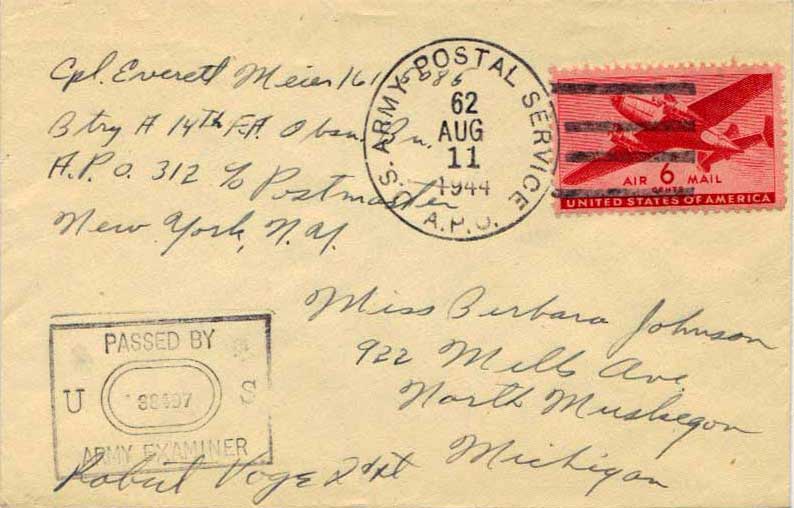 Cpl. Everett Meier
Btry A 14th F.A. Obsn. Bn.
A.P.O. 312 c/o Postmaster
New York, N.Y.
U.S. ARMY POSTAL SERVICE
62
AUG
11
1944
A.P.O.
6
CENTS
AIR MAIL
UNITED STATES OF AMERICA
Miss Barbara Johnson
922 Mills Ave.
North Muskegon
Michigan
PASSED BY
U S
ARMY EXAMINER
Robert Voge 2d Lt